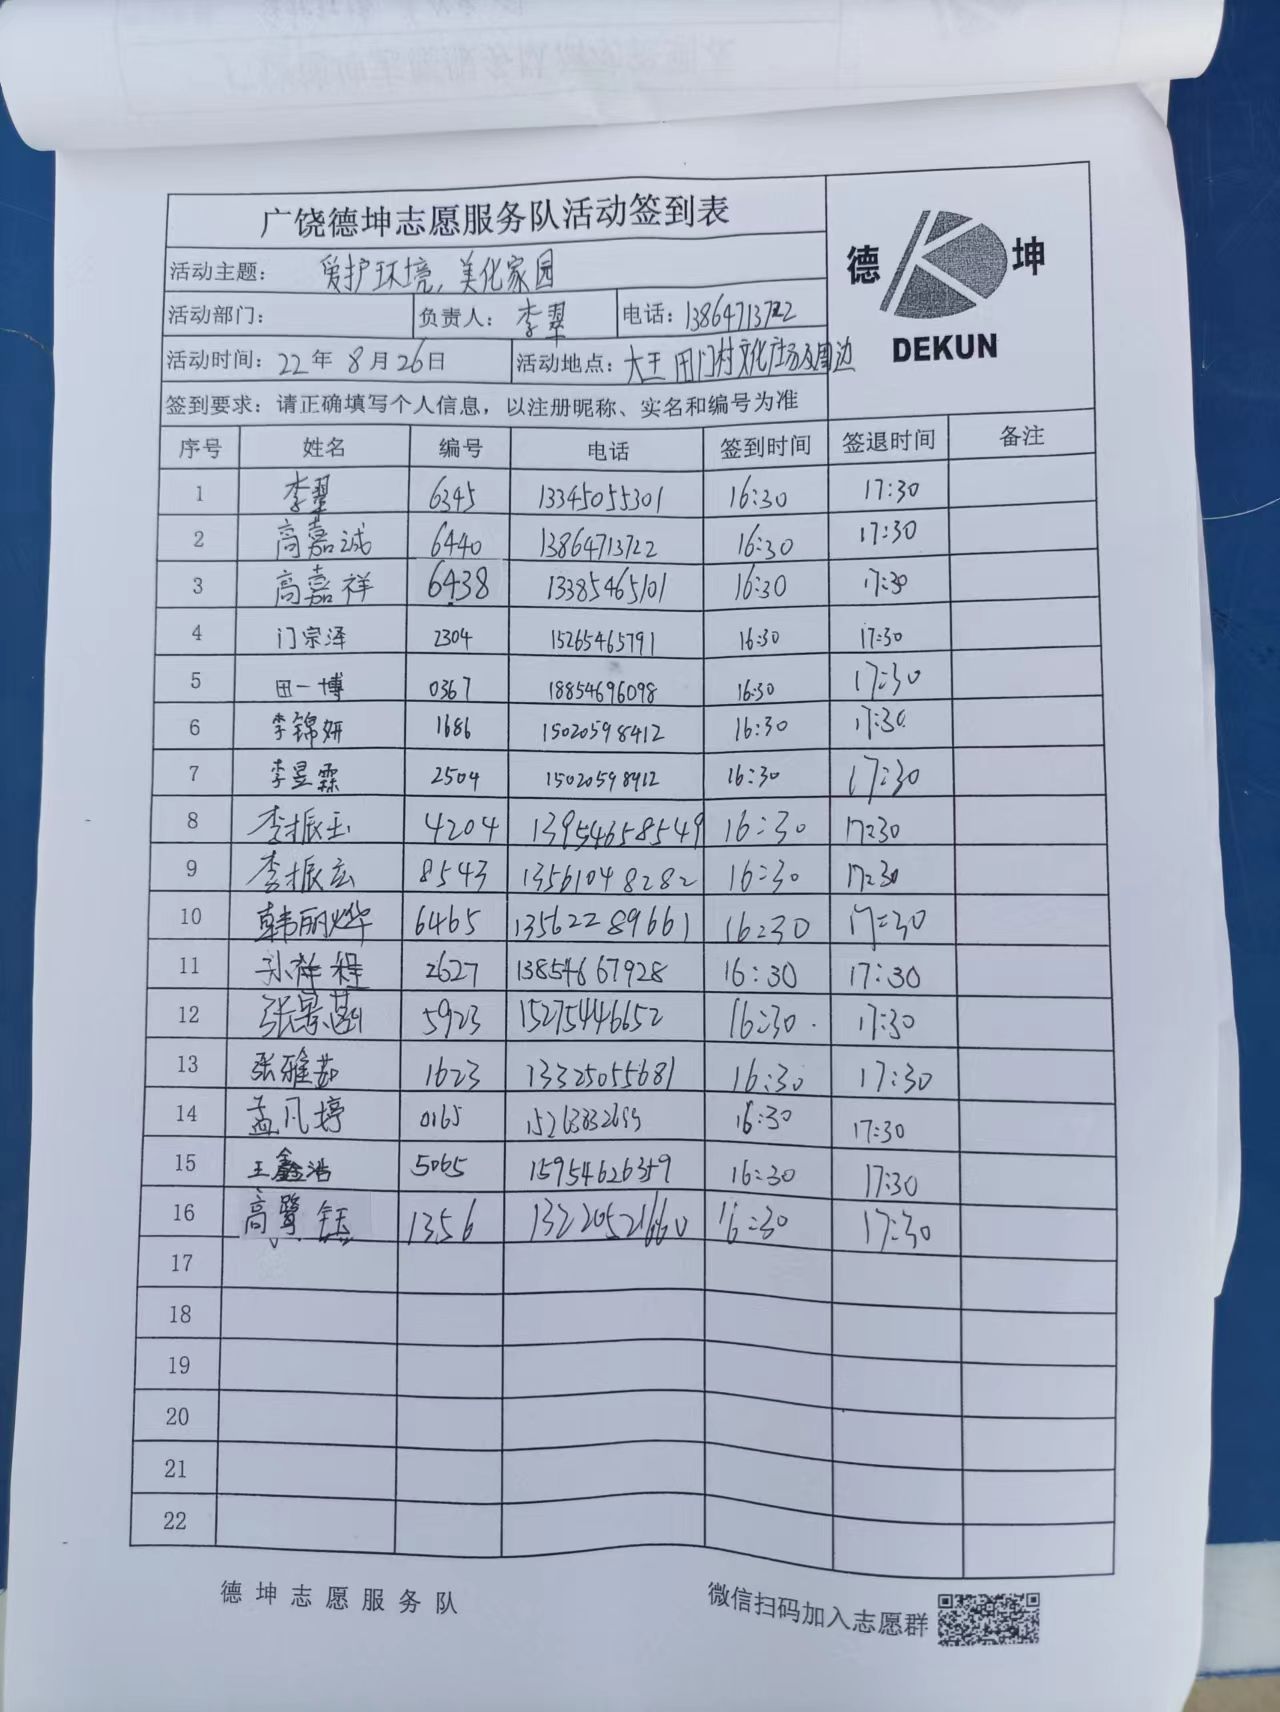 广饶德坤志愿服务队活动签到表
德 坤
DEKUN
活动主题： 爱护环境，美化家园
活动部门： 负责人： 李翠 电话：13864713722
活动时间：22年 8月26日 活动地点：大王 田门村文化广场及周边
签到要求：请正确填写个人信息，以注册昵称、实名和编号为准
序号 姓名 编号 电话 签到时间 签退时间 备注
1 李翠 6345 13345055301 16:30 17:30
2 高嘉诚 6440 13864713722 16:30 17:30
3 高嘉祥 6438 13385465101 16:30 17:30
4 门宗泽 2304 15265465791 16:30 17:30
5 田一博 0367 18854696098 16:30 17:30
6 李锦妍 1686 15020598412 16:30 17:30
7 李昱霖 2504 15020598412 16:30 17:30
8 李振玉 4204 13954658549 16:30 17:30
9 李振宏 8543 13561048282 16:30 17:30
10 韩丽烨 6465 13562289661 16:30 17:30
11 孙祥程 2627 13854667928 16:30 17:30
12 张景菡 5923 15275446652 16:30 17:30
13 张雅茹 1623 13325055681 16:30 17:30
14 孟凡婷 0165 16:30 17:30
15 王鑫浩 5065 15954626359 16:30 17:30
16 高鹭钰 1356 13220521660 16:30 17:30
17
18
19
20
21
22
德坤志愿服务队 微信扫码加入志愿群